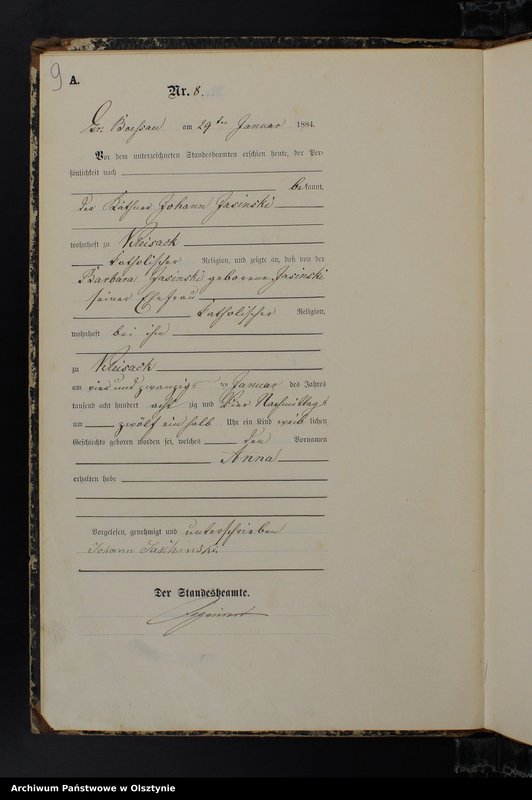 9
A.
Nr. 8.
Gr. Boessau am 29ten Januar 1884.
Vor dem unterzeichneten Standesbeamten erschien heute, der Per-
sönlichkeit nach
bekannt,
der Käthner Johann Jasinski
wohnhaft zu Kleisack
katholischer Religion, und zeigte an, daß von der
Barbara Jasinski geborene Jasinski
seiner Ehefrau
katholischer Religion,
wohnhaft bei ihm
zu Kleisack
am vier und zwanzigs ten Januar des Jahres
tausend acht hundert acht zig und Vier Nachmittags
um zwölf ein halb Uhr ein Kind weib lichen
Geschlechts geboren worden sei, welches den Vornamen
Anna
erhalten habe
Vorgelesen, genehmigt und unterschrieben
Johann Jaschinski
Der Standesbeamte.
Archiwum Państwowe w Olsztynie